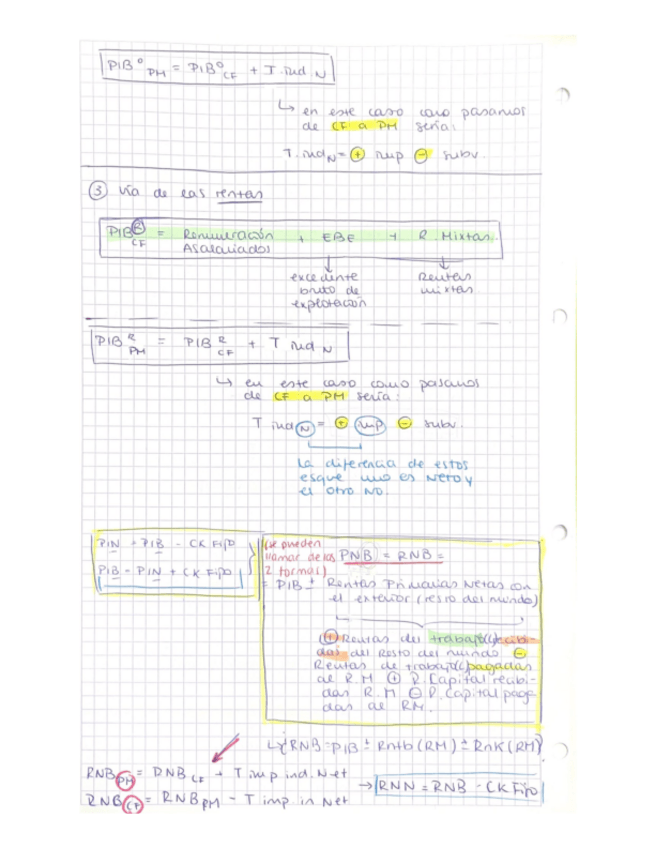 PIB° PM = PIB° CF + T. ind N
↳ en este caso como pasamos
de CF a PM sería:
T. ind N = + imp - subv.
③ Vía de las rentas
PIB R CF = Remuneración Asalariados + EBE + R. Mixtas
excedente bruto de explotación
Rentas mixtas
PIB R PM = PIB R CF + T ind N
↳ en este caso como pasamos
de CF a PM sería:
T ind N = + imp - subv.
la diferencia de estos
esque uno es Neto y
el otro NO.
PIN = PIB - CK Fijo
PIB = PIN + CK Fijo
(se pueden
llamar de las
2 formas)
PNB = RNB =
= PIB ± Rentas Primarias Netas con
el exterior (resto del mundo)
+ Rentas del trabajo recibi-
das del Resto del mundo -
Rentas de trabajo pagadas
al R.M + R. Capital recibi-
das R.M - R. Capital paga-
das al RM.
↳ RNB = PIB ± Rntb (RM) ± RnK (RM)
RNB PM = DNB CF + T imp ind. Net
RNB CF = RNB PM - T imp. in Net
→ RNN = RNB - CK Fijo